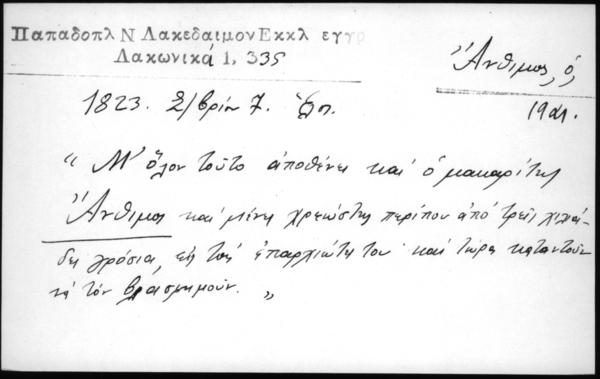 Παπαδοπλ Ν Λακεδαιμον Εκκλ εγγρ
Λακωνικά 1, 335
Ἄνθιμος, ὁ,
1823. 7. Ἐπ.
19αι.
"Μ' ὅλον τοῦτο ἀποθένει καὶ ὁ μακαρίτης
Ἄνθιμος καὶ μένει χρεώστης περίπου ἀπὸ τρεῖς χιλιά-
δες γρόσια, εἰς τοὺς ἐπαρχιώτες του καὶ τώρα καταντοῦν
νὰ τὸν βλασφημοῦν."